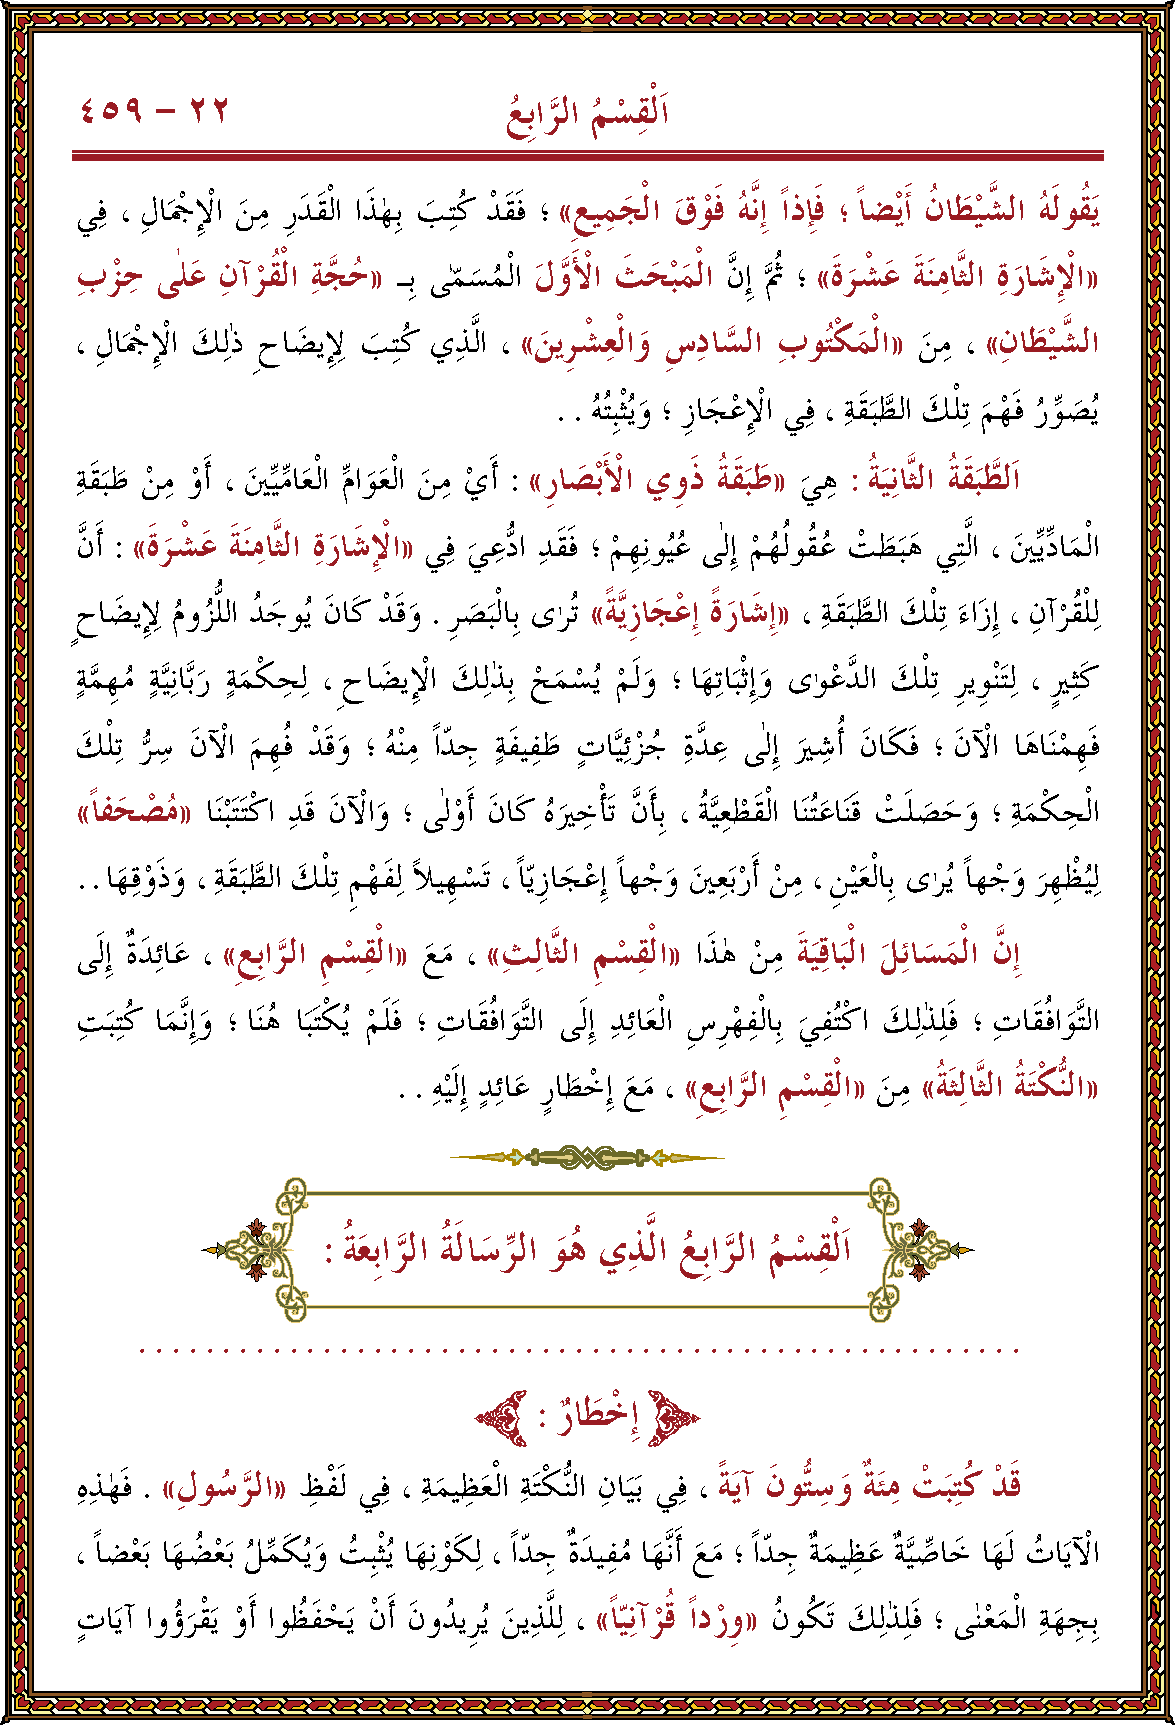 اَلْقِسْمُ الرَّابِعُ
٢٢ - ٤٥٩
يَقُولُهُ الشَّيْطَانُ أَيْضاً ؛ فَإِذاً إِنَّهُ فَوْقَ الْجَمِيعِ» ؛ فَقَدْ كُتِبَ بِهٰذَا الْقَدَرِ مِنَ الْإِجْمَالِ ، فِي
«الْإِشَارَةِ الثَّامِنَةَ عَشْرَةَ» ؛ ثُمَّ إِنَّ الْمَبْحَثَ الْأَوَّلَ الْمُسَمّٰى بِـ «حُجَّةِ الْقُرْآنِ عَلٰى حِزْبِ
الشَّيْطَانِ» ، مِنَ «الْمَكْتُوبِ السَّادِسِ وَالْعِشْرِينَ» ، الَّذِي كُتِبَ لِإِيضَاحِ ذٰلِكَ الْإِجْمَالِ ،
يُصَوِّرُ فَهْمَ تِلْكَ الطَّبَقَةِ ، فِي الْإِعْجَازِ ؛ وَيُثْبِتُهُ . .
اَلطَّبَقَةُ الثَّانِيَةُ : هِيَ «طَبَقَةُ ذَوِي الْأَبْصَارِ» : أَيْ مِنَ الْعَوَامِّ الْعَامِّيِّينَ ، أَوْ مِنْ طَبَقَةِ
الْمَادِّيِّينَ ، الَّتِي هَبَطَتْ عُقُولُهُمْ إِلٰى عُيُونِهِمْ ؛ فَقَدِ ادُّعِيَ فِي «الْإِشَارَةِ الثَّامِنَةَ عَشْرَةَ» : أَنَّ
لِلْقُرْآنِ ، إِزَاءَ تِلْكَ الطَّبَقَةِ ، «إِشَارَةً إِعْجَازِيَّةً» تُرٰى بِالْبَصَرِ . وَقَدْ كَانَ يُوجَدُ اللُّزُومُ لِإِيضَاحٍ
كَثِيرٍ ، لِتَنْوِيرِ تِلْكَ الدَّعْوٰى وَإِثْبَاتِهَا ؛ وَلَمْ يُسْمَحْ بِذٰلِكَ الْإِيضَاحِ ، لِحِكْمَةٍ رَبَّانِيَّةٍ مُهِمَّةٍ
فَهِمْنَاهَا الْآنَ ؛ فَكَانَ أُشِيرَ إِلٰى عِدَّةِ جُزْئِيَّاتٍ طَفِيفَةٍ جِدّاً مِنْهُ ؛ وَقَدْ فُهِمَ الْآنَ سِرُّ تِلْكَ
الْحِكْمَةِ ؛ وَحَصَلَتْ قَنَاعَتُنَا الْقَطْعِيَّةُ ، بِأَنَّ تَأْخِيرَهُ كَانَ أَوْلٰى ؛ وَالْآنَ قَدِ اكْتَتَبْنَا «مُصْحَفاً»
لِيُظْهِرَ وَجْهاً يُرٰى بِالْعَيْنِ ، مِنْ أَرْبَعِينَ وَجْهاً إِعْجَازِيّاً ، تَسْهِيلاً لِفَهْمِ تِلْكَ الطَّبَقَةِ ، وَذَوْقِهَا . .
إِنَّ الْمَسَائِلَ الْبَاقِيَةَ مِنْ هٰذَا «الْقِسْمِ الثَّالِثِ» ، مَعَ «الْقِسْمِ الرَّابِعِ» ، عَائِدَةٌ إِلَى
التَّوَافُقَاتِ ؛ فَلِذٰلِكَ اكْتُفِيَ بِالْفِهْرِسِ الْعَائِدِ إِلَى التَّوَافُقَاتِ ؛ فَلَمْ يُكْتَبَا هُنَا ؛ وَإِنَّمَا كُتِبَتِ
«النُّكْتَةُ الثَّالِثَةُ» مِنَ «الْقِسْمِ الرَّابِعِ» ، مَعَ إِخْطَارٍ عَائِدٍ إِلَيْهِ . .
اَلْقِسْمُ الرَّابِعُ الَّذِي هُوَ الرِّسَالَةُ الرَّابِعَةُ :
. . . . . . . . . . . . . . . . . . . . . . . . . . . . . . . . . . . . . . . . . . . . . . . . . . . . . .
إِخْطَارٌ :
قَدْ كُتِبَتْ مِئَةٌ وَسِتُّونَ آيَةً ، فِي بَيَانِ النُّكْتَةِ الْعَظِيمَةِ ، فِي لَفْظِ «الرَّسُولِ» . فَهٰذِهِ
الْآيَاتُ لَهَا خَاصِّيَّةٌ عَظِيمَةٌ جِدّاً ؛ مَعَ أَنَّهَا مُفِيدَةٌ جِدّاً ، لِكَوْنِهَا يُثْبِتُ وَيُكَمِّلُ بَعْضُهَا بَعْضاً ،
بِجِهَةِ الْمَعْنٰى ؛ فَلِذٰلِكَ تَكُونُ «وِرْداً قُرْآنِيّاً» ، لِلَّذِينَ يُرِيدُونَ أَنْ يَحْفَظُوا أَوْ يَقْرَؤُوا آيَاتٍ